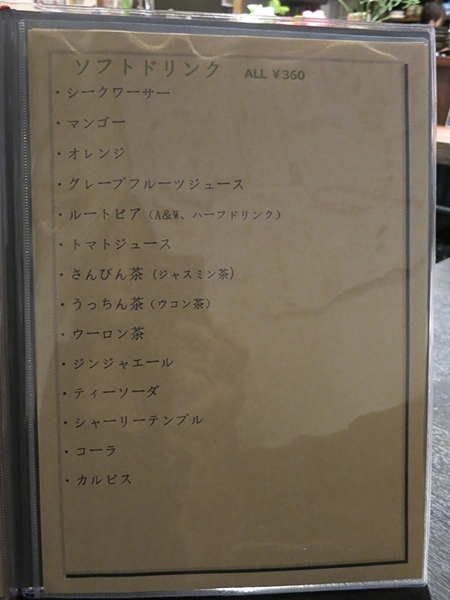 ソフトドリンク ALL ¥360
・シークワーサー
・マンゴー
・オレンジ
・グレープフルーツジュース
・ルートビア（A&W、ハーフドリンク）
・トマトジュース
・さんぴん茶（ジャスミン茶）
・うっちん茶（ウコン茶）
・ウーロン茶
・ジンジャエール
・ティーソーダ
・シャーリーテンプル
・コーラ
・カルピス